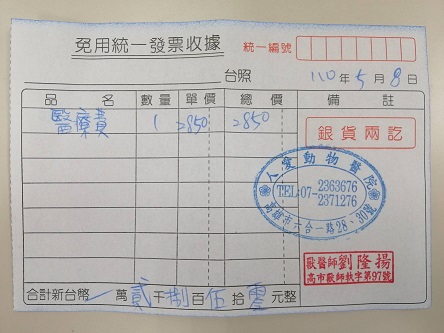 免用統一發票收據
統一編號
台照
110年5月8日
品名 數量 單價 總價 備註
醫療費 1 2850 2850
銀貨兩訖
人愛動物醫院
TEL:07-2363676
2371276
高雄市六合一路28、30號
獸醫師劉隆揚
高市獸師執字第97號
合計新台幣 萬貳千捌百伍拾零元整